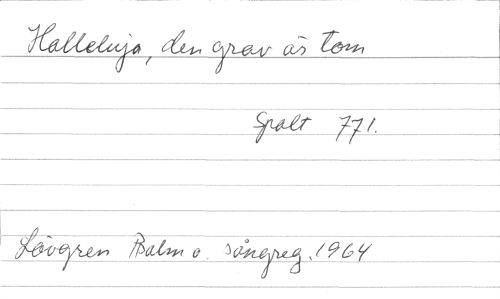 Halleluja, den grav är tom
Spalt 771.
Lövgren Psalm o. sångreg. 1964